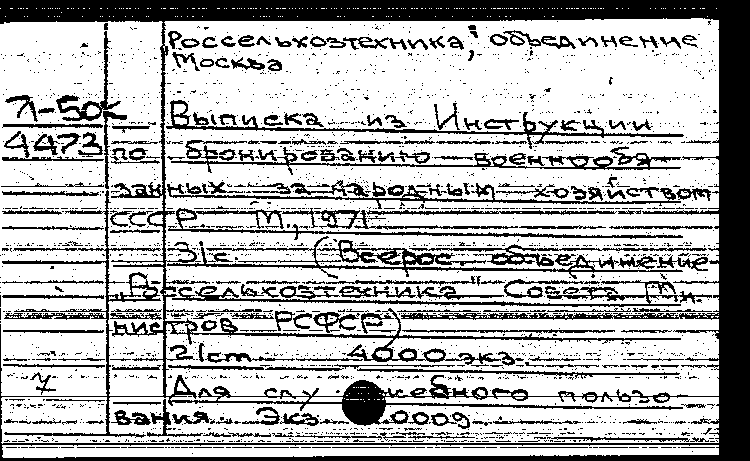 "Россельхозтехника", объединение
Москва
Л-50к
Выписка из Инструкции
4473 по бронированию военнообя-
занных за народным хозяйством
СССР. М., 1971
31с. (Всерос. объединение
"Россельхозтехника" Совета Ми-
нистров РСФСР)
21см. 4000 экз.
Для слу жебного пользо-
вания. Экз. 0009